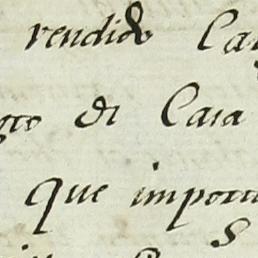 rendido Ca
gto di Casa
Que importa
S